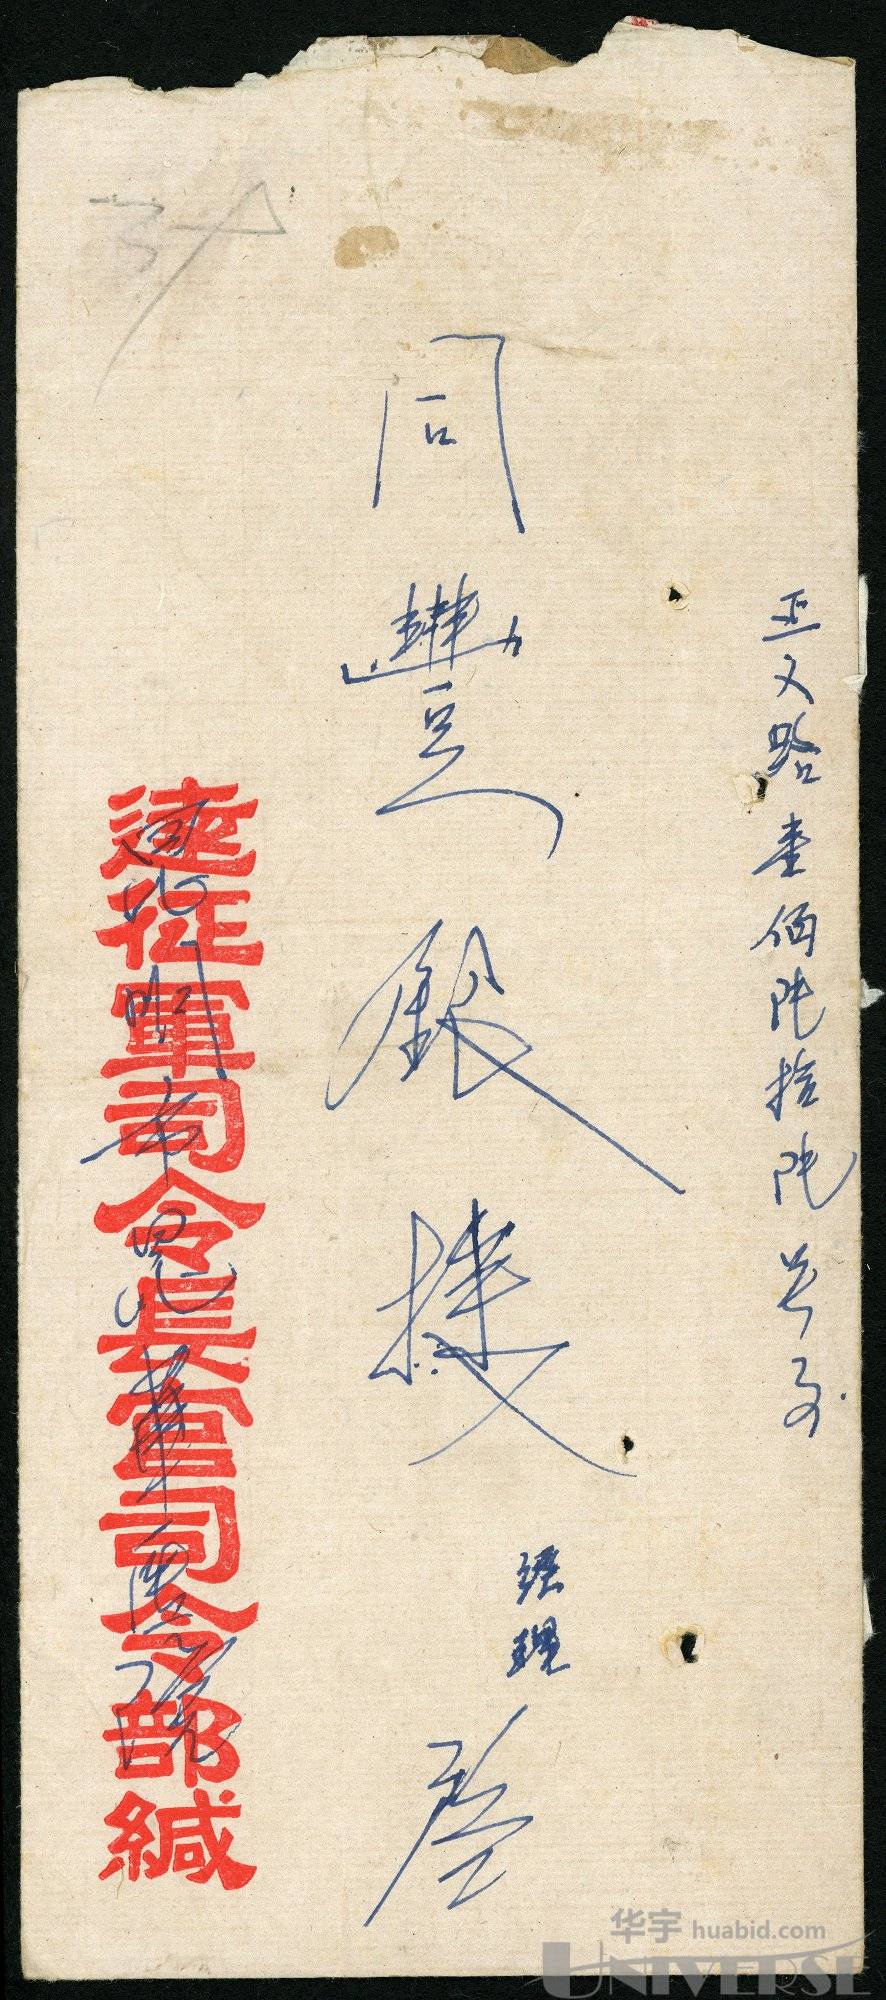 正义路壹佰陆拾陆号
同豐銀樓
經理
啓
遠征軍司令長官司令部緘
昆明市昆華医院
华宇 huabid.com
UNIVERSE